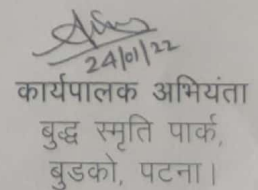 24/01/22
कार्यपालक अभियंता
बुद्ध स्मृति पार्क,
बुडको, पटना।